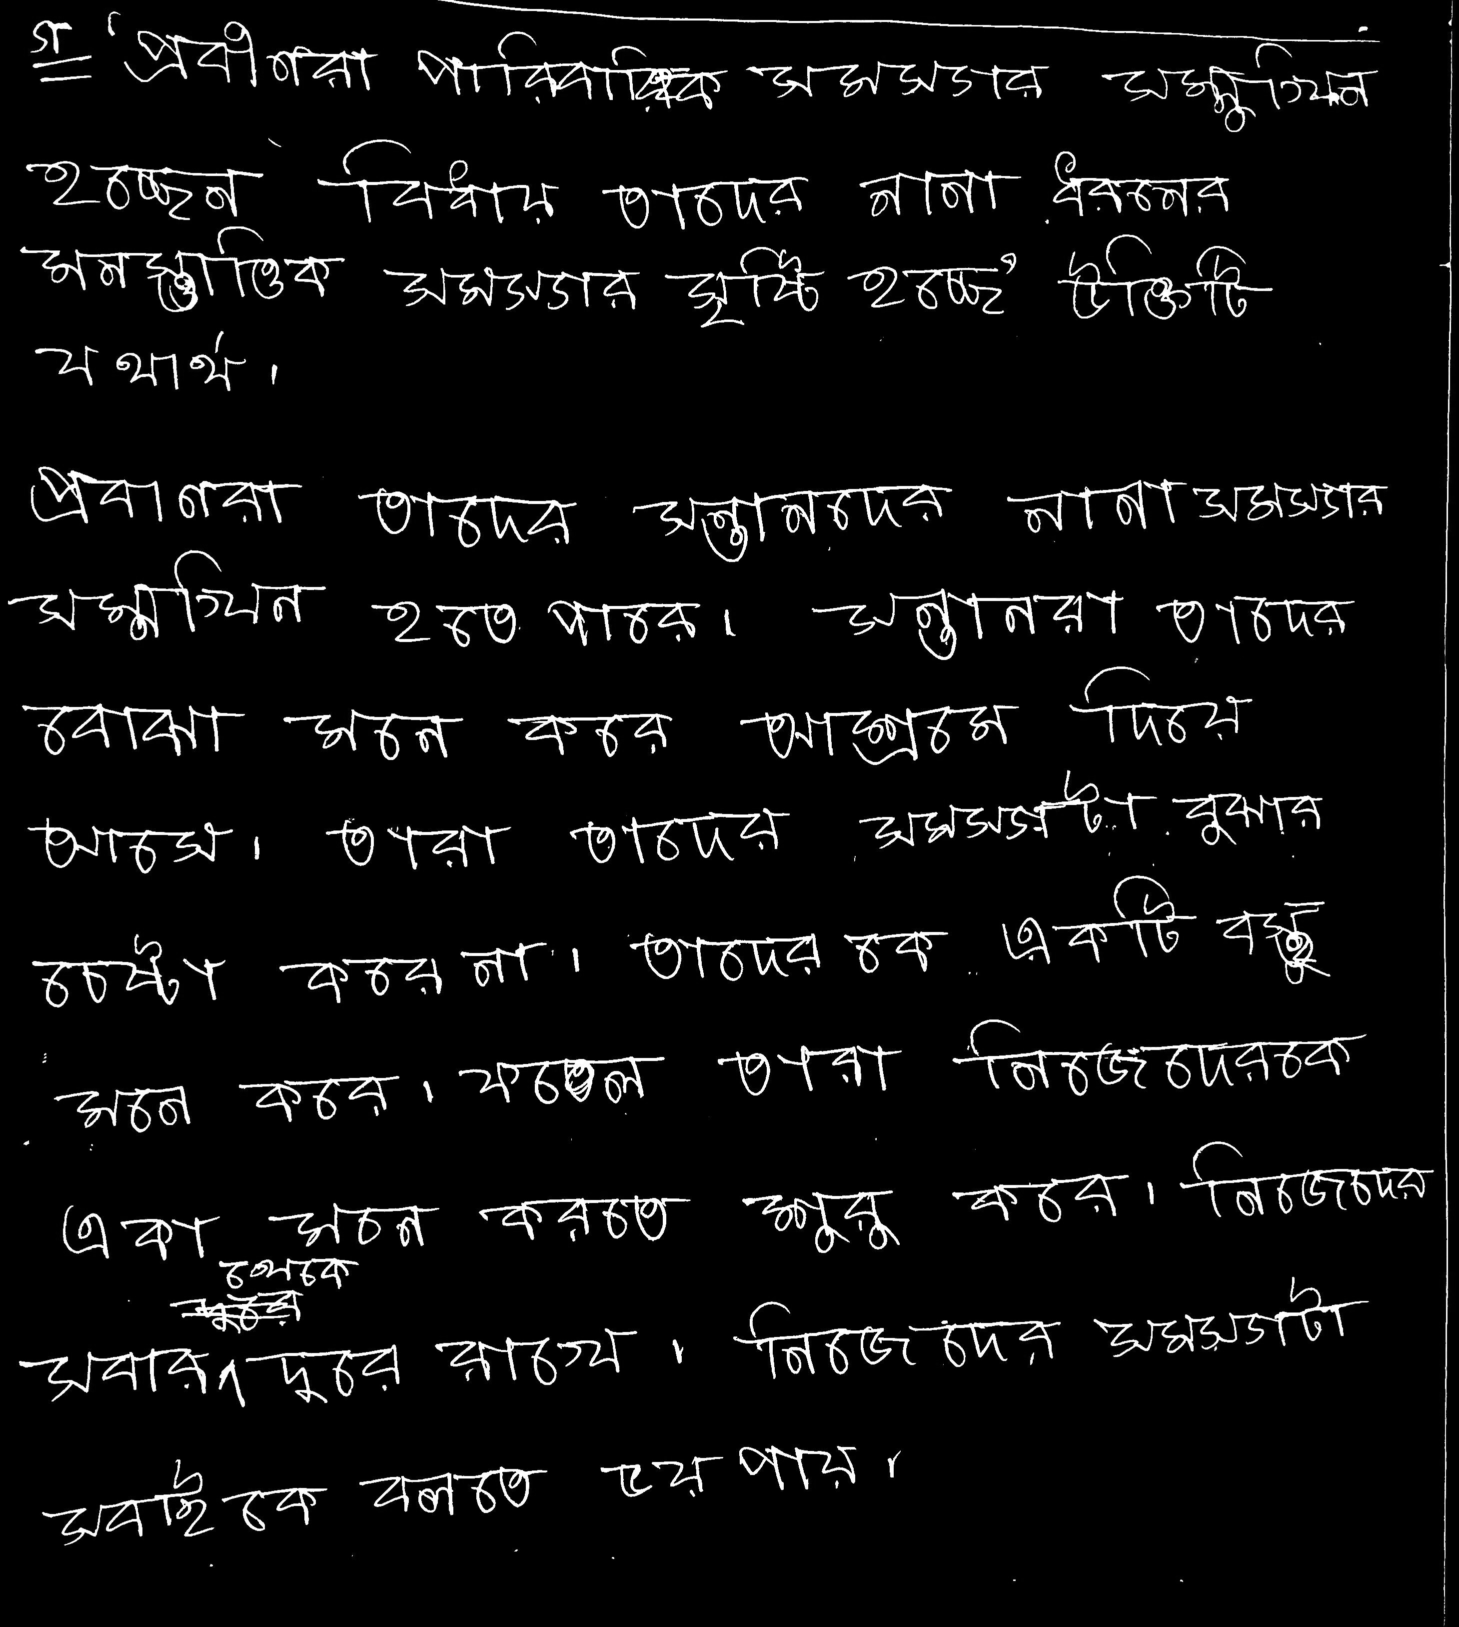 গ 'প্রবীণরা পারিবারিক সমস্যার সম্মুখিন
হচ্ছেন বিধায় তাদের নানা ধরনের
মনস্তাত্তিক সমস্যার সৃষ্টি হচ্ছে' উক্তিটি
যথার্থ।
প্রবীণরা তাদের সন্তানদের নানা সমস্যার
সম্মুখিন হতে পারে। সন্তানরা তাদের
বোঝা মনে করে আশ্রমে দিয়ে
আসে। তারা তাদের সমস্যাটা বুঝার
চেষ্টা করে না। তাদের কে একটি বস্তু
মনে করে। ফলে তারা নিজেদেরকে
একা মনে করতে শুরু করে। নিজেদের
সবার থেকে দুরে রাখে। নিজেদের সমস্যাটা
সবাইকে বলতে ভয় পায়।